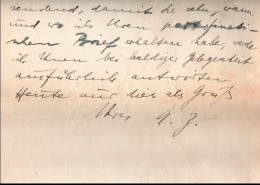 sendend, damit Sie sehn, wann
und wo ich Ihren
Brief erhalten habe, werde
ich Ihnen bei baldiger Gelegenheit
ausführlich antworten.
Heute nur dies als Gruß
Ihres A. Z.